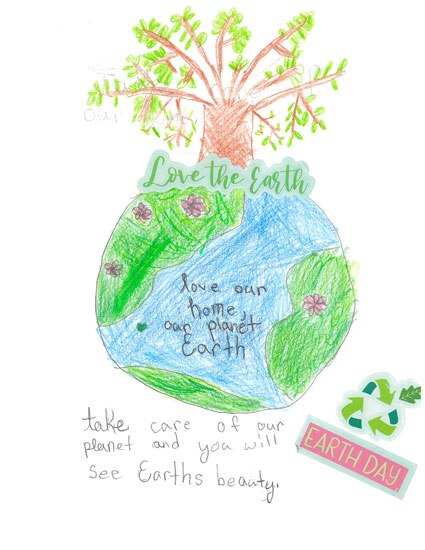 Love the Earth
love our
home,
our planet
Earth
take care of our
planet and you will
see Earths beauty.
EARTH DAY